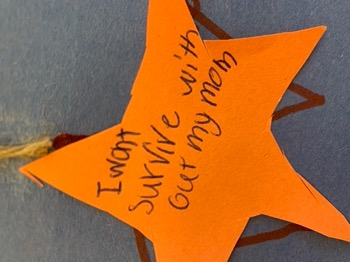 I wont
survive with
out my mom